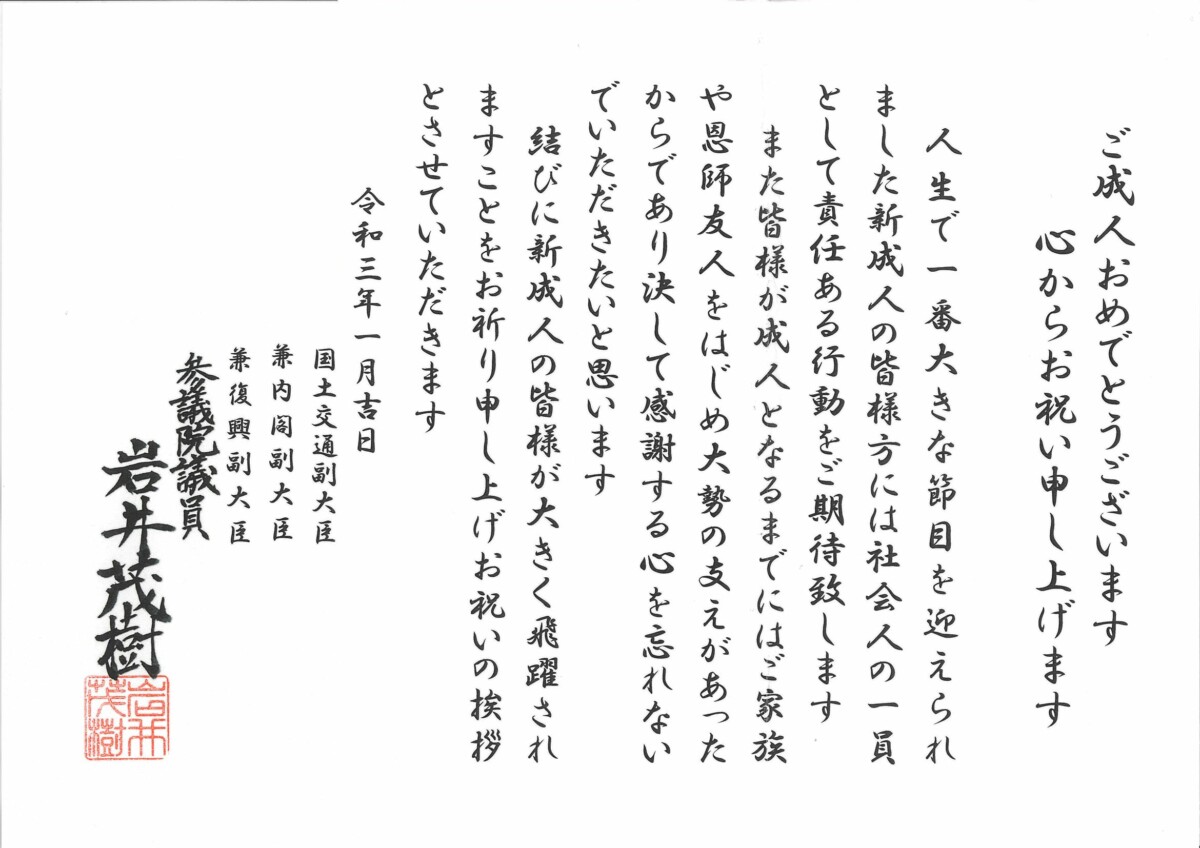 ご成人おめでとうございます
心からお祝い申し上げます
人生で一番大きな節目を迎えられ
ました新成人の皆様方には社会人の一員
として責任ある行動をご期待致します
また皆様が成人となるまでにはご家族
や恩師友人をはじめ大勢の支えがあった
からであり決して感謝する心を忘れない
でいただきたいと思います
結びに新成人の皆様が大きく飛躍され
ますことをお祈り申し上げお祝いの挨拶
とさせていただきます
令和三年一月吉日
国土交通副大臣
兼内閣副大臣
兼復興副大臣
参議院議員
岩井茂樹
岩井
茂樹